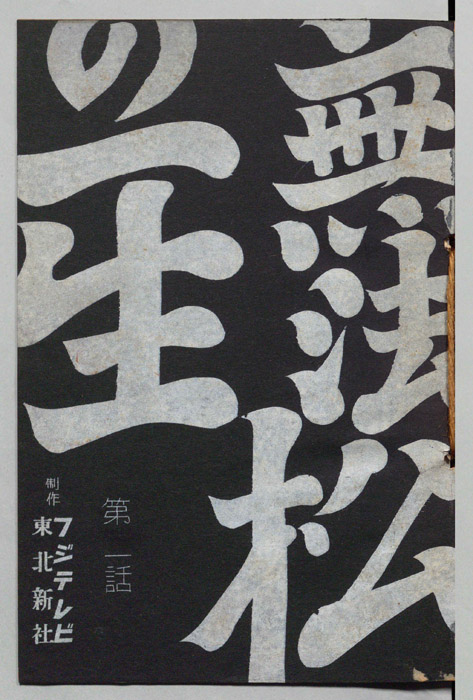 無法松
の一生
第一話
制作
フジテレビ
東北新社